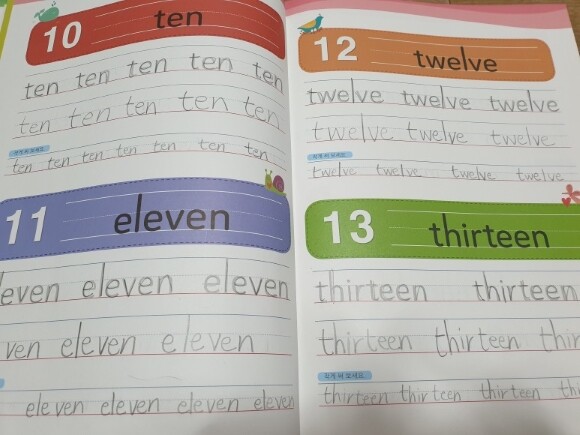 10 ten
ten ten ten ten ten
ten ten ten ten ten
작게 써 보세요.
ten ten ten ten ten ten ten
11 eleven
even eleven eleven
ven eleven eleven
eleven eleven eleven eleven
12 twelve
twelve twelve twelve
twelve twelve twelve
작게 써 보세요.
twelve twelve twelve twelve
13 thirteen
thirteen thirteen
thirteen thirteen thir
작게 써 보세요.
thirteen thirteen thirteen thi